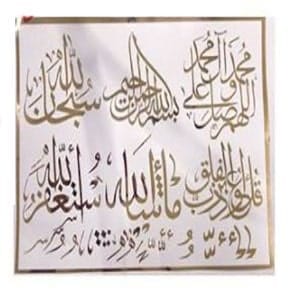 اللهم صل على محمد وآل محمد
بسم الله الرحمن الرحيم
سبحان الله
قل أعوذ برب الفلق
ما شاء الله
أستغفر الله